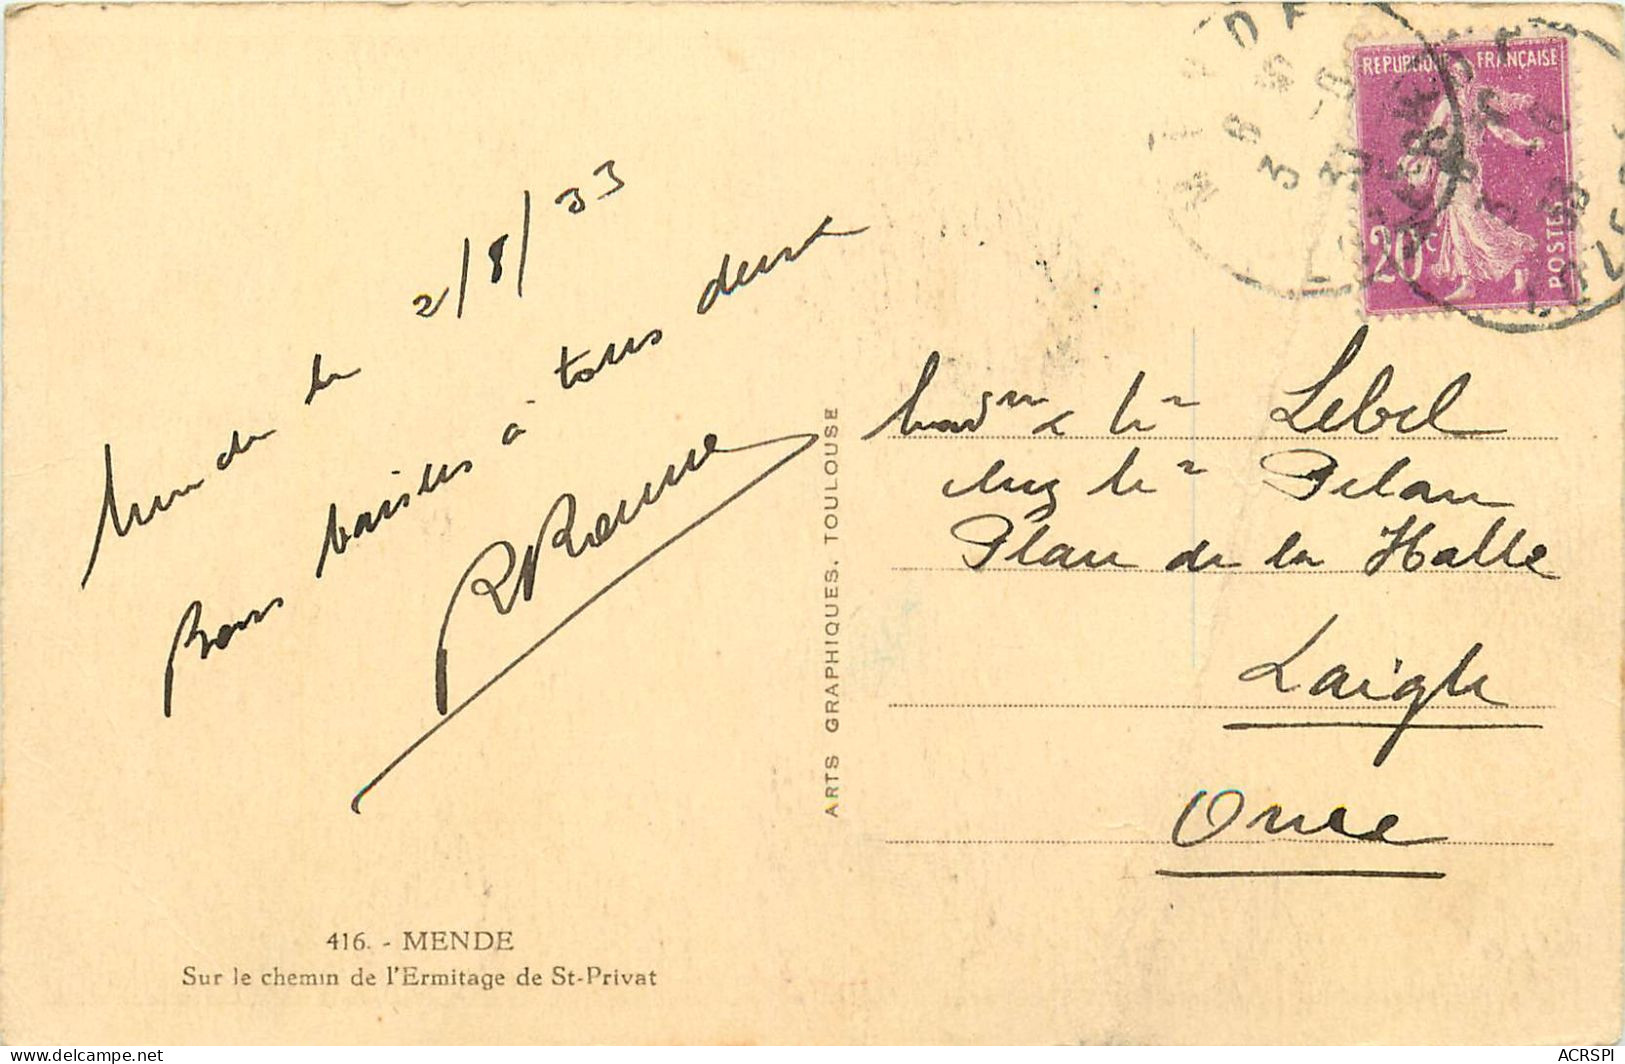 Mende le 2/8/33
Bons baisers à tous deux
Madme & Mr Lebel
chez Mr Pelan
Place de la Halle
Laigle
Orne
REPUBLIQUE FRANÇAISE
20c
POSTES
MENDE
LOZERE
ARTS GRAPHIQUES, TOULOUSE
416. - MENDE
Sur le chemin de l'Ermitage de St-Privat
ACRSPI